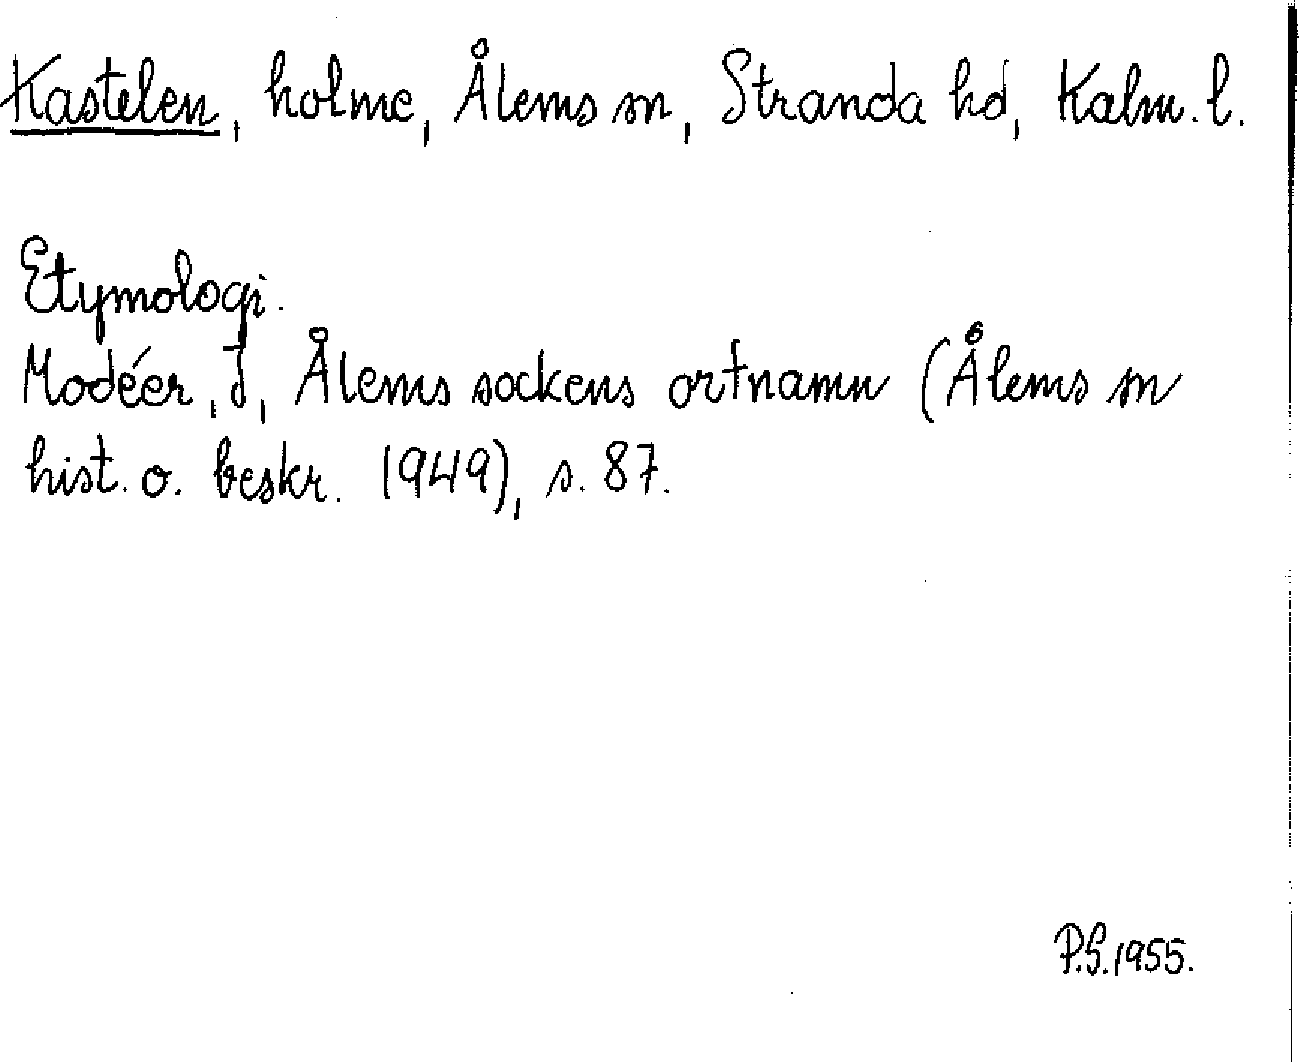 Kastelen, holme, Ålems sn, Stranda hd, Kalm. l.
Etymologi.
Modéer, I, Ålems sockens ortnamn (Ålems sn
hist. o. beskr. 1949), s. 87.
P.S. 1955.